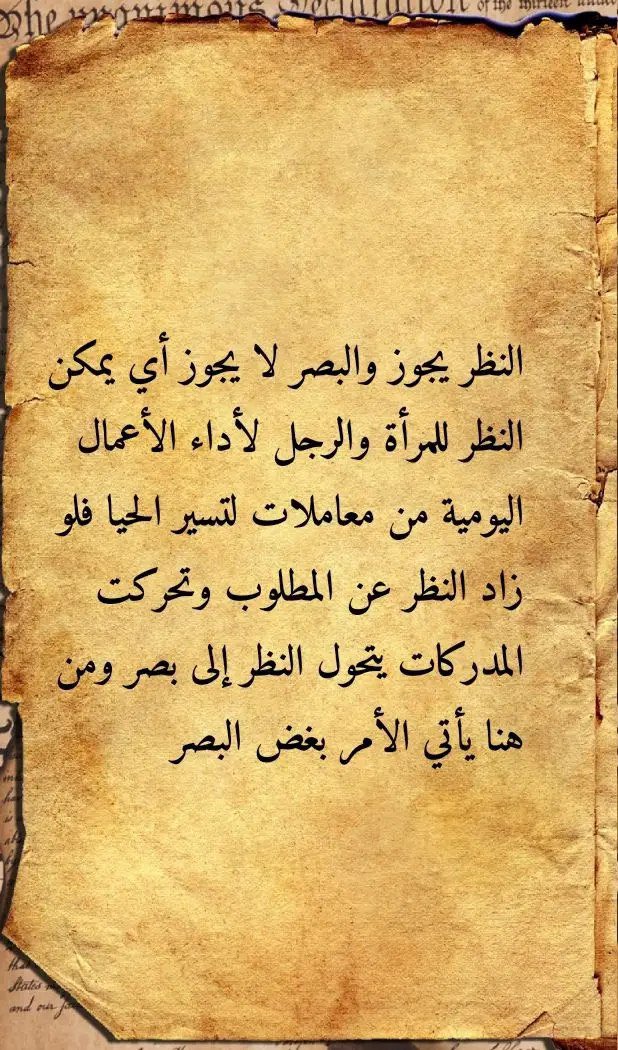 The unanimous Declaration of the thirteen united
النظر يجوز والبصر لا يجوز أي يمكن
النظر للمرأة والرجل لأداء الأعمال
اليومية من معاملات لتسير الحيا فلو
زاد النظر عن المطلوب وتحركت
المدركات يتحول النظر إلى بصر ومن
هنا يأتي الأمر بغض البصر
States
and our